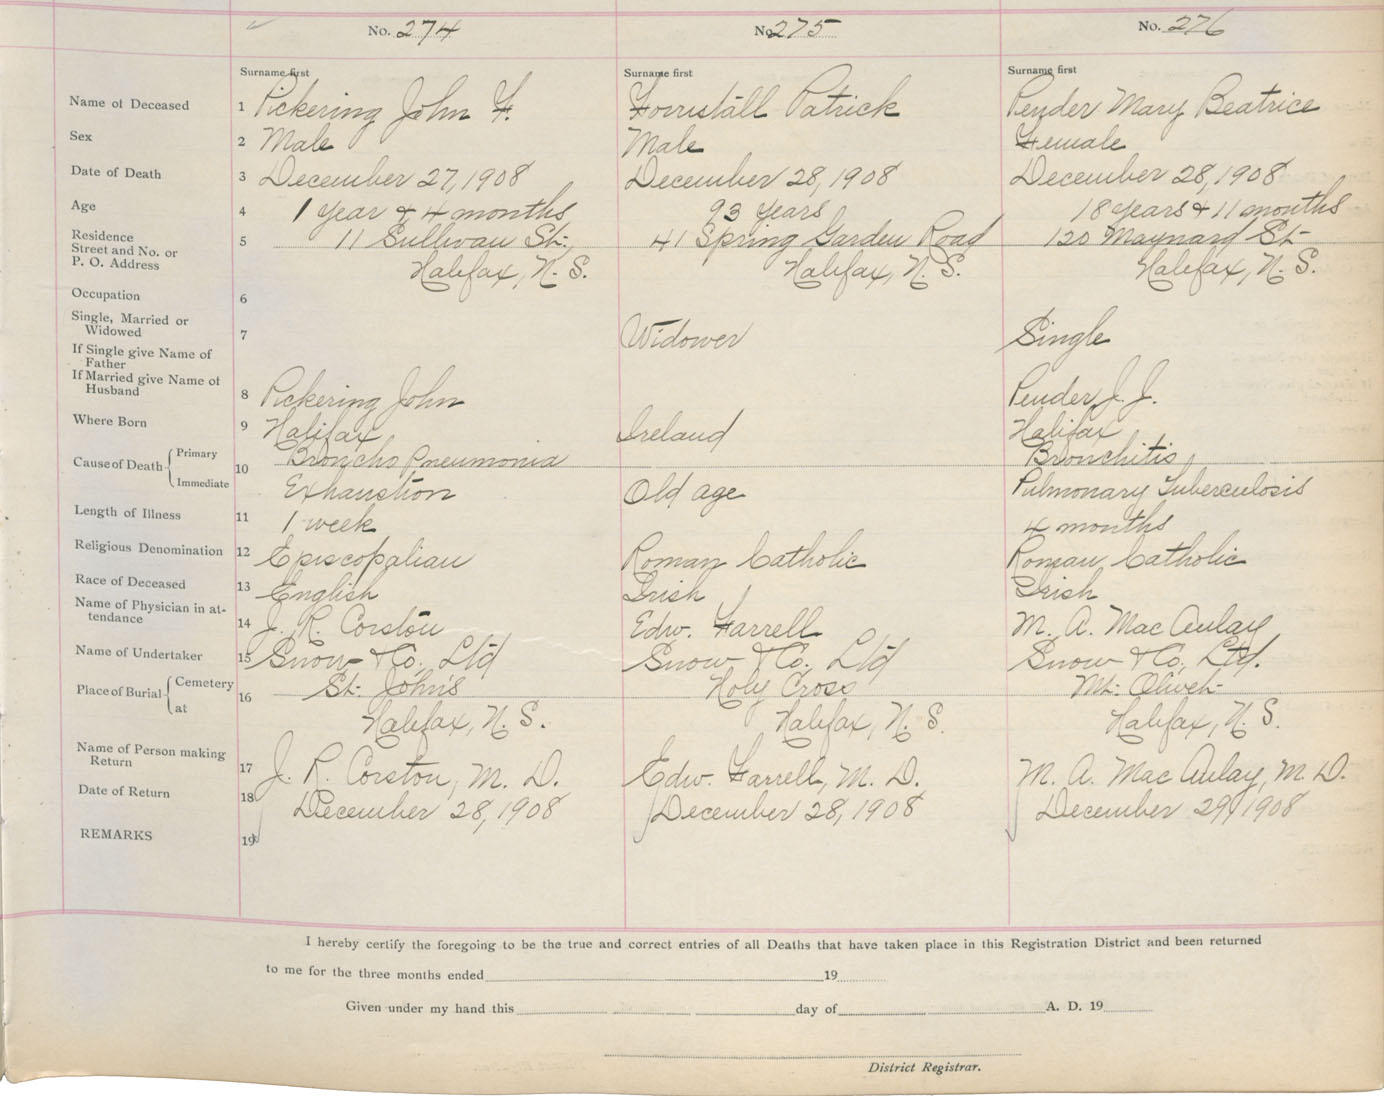 No. 274 No. 275 No. 276
Surname first Surname first Surname first
Name of Deceased 1 Pickering John F. Forristall Patrick Pender Mary Beatrice
Sex 2 Male Male Female
Date of Death 3 December 27, 1908 December 28, 1908 December 28, 1908
Age 4 1 year & 4 months 93 years 18 years & 11 months
Residence
Street and No. or 5 11 Sullivan St., 41 Spring Garden Road 120 Maynard St.
P. O. Address Halifax, N. S. Halifax, N. S. Halifax, N. S.
Occupation 6
Single, Married or
Widowed 7 Widower Single
If Single give Name of
Father
If Married give Name of
Husband 8 Pickering John Pender J. J.
Where Born 9 Halifax Ireland Halifax
Cause of Death Primary 10 Broncho Pneumonia Bronchitis
Immediate Exhaustion Old age Pulmonary Tuberculosis
Length of Illness 11 1 week 4 months
Religious Denomination 12 Episcopalian Roman Catholic Roman Catholic
Race of Deceased 13 English Irish Irish
Name of Physician in at-
tendance 14 J. R. Corston Edw. Farrell M. A. MacAulay
Name of Undertaker 15 Snow & Co., Ltd Snow & Co., Ltd Snow & Co., Ltd.
Place of Burial Cemetery 16 St. John's Holy Cross Mt. Olivet
at Halifax, N. S. Halifax, N. S. Halifax, N. S.
Name of Person making
Return 17 J. R. Corston, M. D. Edw. Farrell, M. D. M. A. MacAulay, M. D.
Date of Return 18 December 28, 1908 December 28, 1908 December 29, 1908
REMARKS 19
I hereby certify the foregoing to be the true and correct entries of all Deaths that have taken place in this Registration District and been returned
to me for the three months ended 19
Given under my hand this day of A. D. 19
District Registrar.